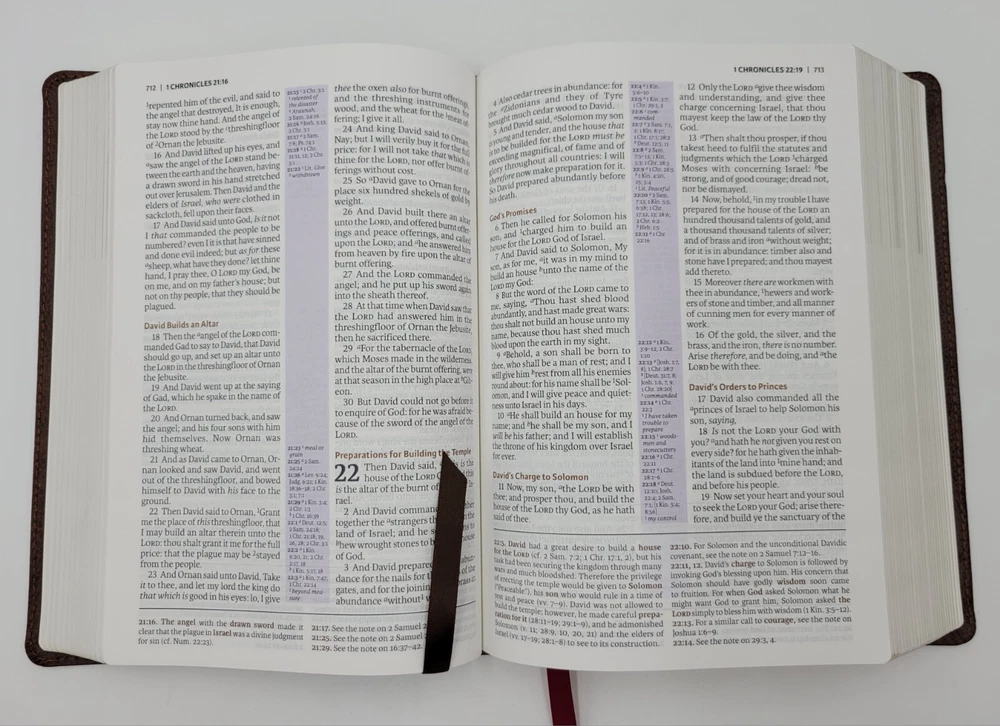 712 | 1 CHRONICLES 21:16
¹repented him of the evil, and said to
the angel that destroyed, It is enough,
stay now thine hand. And the angel of
the LORD stood by the ᵃthreshingfloor
of ²Ornan the Jebusite.
16 And David lifted up his eyes, and
ᵃsaw the angel of the LORD stand be-
tween the earth and the heaven, having
a drawn sword in his hand stretched
out over Jerusalem. Then David and the
elders of Israel, who were clothed in
sackcloth, fell upon their faces.
17 And David said unto God, Is it not
I that commanded the people to be
numbered? even I it is that have sinned
and done evil indeed; but as for these
ᵃsheep, what have they done? let thine
hand, I pray thee, O LORD my God, be
on me, and on my father's house; but
not on thy people, that they should be
plagued.
David Builds an Altar
18 Then the ᵃangel of the LORD com-
manded Gad to say to David, that David
should go up, and set up an altar unto
the LORD in the threshingfloor of Ornan
the Jebusite.
19 And David went up at the saying
of Gad, which he spake in the name of
the LORD.
20 And Ornan turned back, and saw
the angel; and his four sons with him
hid themselves. Now Ornan was
threshing wheat.
21 And as David came to Ornan, Or-
nan looked and saw David, and went
out of the threshingfloor, and bowed
himself to David with his face to the
ground.
22 Then David said to Ornan, ¹Grant
me the place of this threshingfloor, that
I may build an altar therein unto the
LORD: thou shalt grant it me for the full
price: that the plague may be ²stayed
from the people.
23 And Ornan said unto David, Take
it to thee, and let my lord the king do
that which is good in his eyes: lo, I give
thee the oxen also for burnt offerings,
and the threshing instruments for
wood, and the wheat for the meat of-
fering; I give it all.
24 And king David said to Ornan,
Nay; but I will verily buy it for the full
price: for I will not take that which is
thine for the LORD, nor offer burnt of-
ferings without cost.
25 So ᵃDavid gave to Ornan for the
place six hundred shekels of gold by
weight.
26 And David built there an altar
unto the LORD, and offered burnt offer-
ings and peace offerings, and called
upon the LORD; and ᵃhe answered him
from heaven by fire upon the altar of
burnt offering.
27 And the LORD commanded the
angel; and he put up his sword again
into the sheath thereof.
28 At that time when David saw that
the LORD had answered him in the
threshingfloor of Ornan the Jebusite,
then he sacrificed there.
29 ᵃFor the tabernacle of the LORD,
which Moses made in the wilderness,
and the altar of the burnt offering, were
at that season in the high place at ᵇGib-
eon.
30 But David could not go before it
to enquire of God: for he was afraid be-
cause of the sword of the angel of the
LORD.
Preparations for Building the Temple
22 Then David said, is the
house of the LORD this
is the altar of the burnt of Is-
rael.
2 And David command
together the ᵃstrangers
land of Israel; and he s
ᵇhew wrought stones to b
of God.
3 And David prepared
dance for the nails for t of the
gates, and for the joinin
abundance ᵃwithout¹
21:16. The angel with the drawn sword made it
clear that the plague in Israel was a divine judgment
for sin (cf. Num. 22:23).
21:17. See the note on 2 Samuel 2
21:25. See the note on 2 Samuel
21:29. See the note on 16:37–42.
1 CHRONICLES 22:19 | 713
4 Also cedar trees in abundance: for
the ᵃZidonians and they of Tyre
brought much cedar wood to David.
5 And David said, ᵃSolomon my son
is young and tender, and the house that
is to be builded for the LORD must be
exceeding magnifical, of fame and of
glory throughout all countries: I will
therefore now make preparation for it.
So David prepared abundantly before
his death.
God's Promises
6 Then he called for Solomon his
son, and ¹charged him to build an
house for the LORD God of Israel.
7 And David said to Solomon, My
son, as for me, ᵃit was in my mind to
build an house ᵇunto the name of the
LORD my God:
8 But the word of the LORD came to
me, saying, ᵃThou hast shed blood
abundantly, and hast made great wars:
thou shalt not build an house unto my
name, because thou hast shed much
blood upon the earth in my sight.
9 ᵃBehold, a son shall be born to
thee, who shall be a man of rest; and I
will give him ᵇrest from all his enemies
round about: for his name shall be ¹Sol-
omon, and I will give peace and quiet-
ness unto Israel in his days.
10 ᵃHe shall build an house for my
name; and ᵇhe shall be my son, and I
will be his father; and I will establish
the throne of his kingdom over Israel
for ever.
David's Charge to Solomon
11 Now, my son, ᵃthe LORD be with
thee; and prosper thou, and build the
house of the LORD thy God, as he hath
said of thee.
12 Only the LORD ᵃgive thee wisdom
and understanding, and give thee
charge concerning Israel, that thou
mayest keep the law of the LORD thy
God.
13 ᵃThen shalt thou prosper, if thou
takest heed to fulfil the statutes and
judgments which the LORD ¹charged
Moses with concerning Israel: ᵇbe
strong, and of good courage; dread not,
nor be dismayed.
14 Now, behold, ¹in my trouble I have
prepared for the house of the LORD an
hundred thousand talents of gold, and
a thousand thousand talents of silver;
and of brass and iron ᵃwithout weight;
for it is in abundance: timber also and
stone have I prepared; and thou mayest
add thereto.
15 Moreover there are workmen with
thee in abundance, ¹hewers and work-
ers of stone and timber, and all manner
of cunning men for every manner of
work.
16 Of the gold, the silver, and the
brass, and the iron, there is no number.
Arise therefore, and be doing, and ᵃthe
LORD be with thee.
David's Orders to Princes
17 David also commanded all the
ᵃprinces of Israel to help Solomon his
son, saying,
18 Is not the LORD your God with
you? ᵃand hath he not given you rest on
every side? for he hath given the inhab-
itants of the land into ¹mine hand; and
the land is subdued before the LORD,
and before his people.
19 Now set your heart and your soul
to seek the LORD your God; arise there-
fore, and build ye the sanctuary of the
22:5. David had a great desire to build a house
for the LORD (cf. 2 Sam. 7:2; 1 Chr. 17:1, 2), but his
task had been securing the kingdom through many
wars and much bloodshed. Therefore the privilege
of erecting the temple would be given to Solomon
("Peaceable"), his son who would rule in a time of
rest and peace (vv. 7–9). David was not allowed to
build the temple; however, he made careful prepa-
ration for it (28:11–19; 29:1–9), and admonished
Solomon (v. 11; 28:9, 10, 20, 21) and the elders of
Israel (vv. 17–19, 28:1–8) to see to its construction.
22:10. For Solomon and the unconditional Davidic
covenant, see the note on 2 Samuel 7:12–16.
22:11, 12. David's charge to Solomon is followed by
invoking God's blessing upon him. His concern that
Solomon should have godly wisdom soon came
to fruition. For when God asked Solomon what he
might want God to grant him, Solomon asked the
LORD simply to bless him with wisdom (1 Kin. 3:5–12).
22:13. For a similar call to courage, see the note on
Joshua 1:6–9.
22:14. See the note on 29:3, 4.